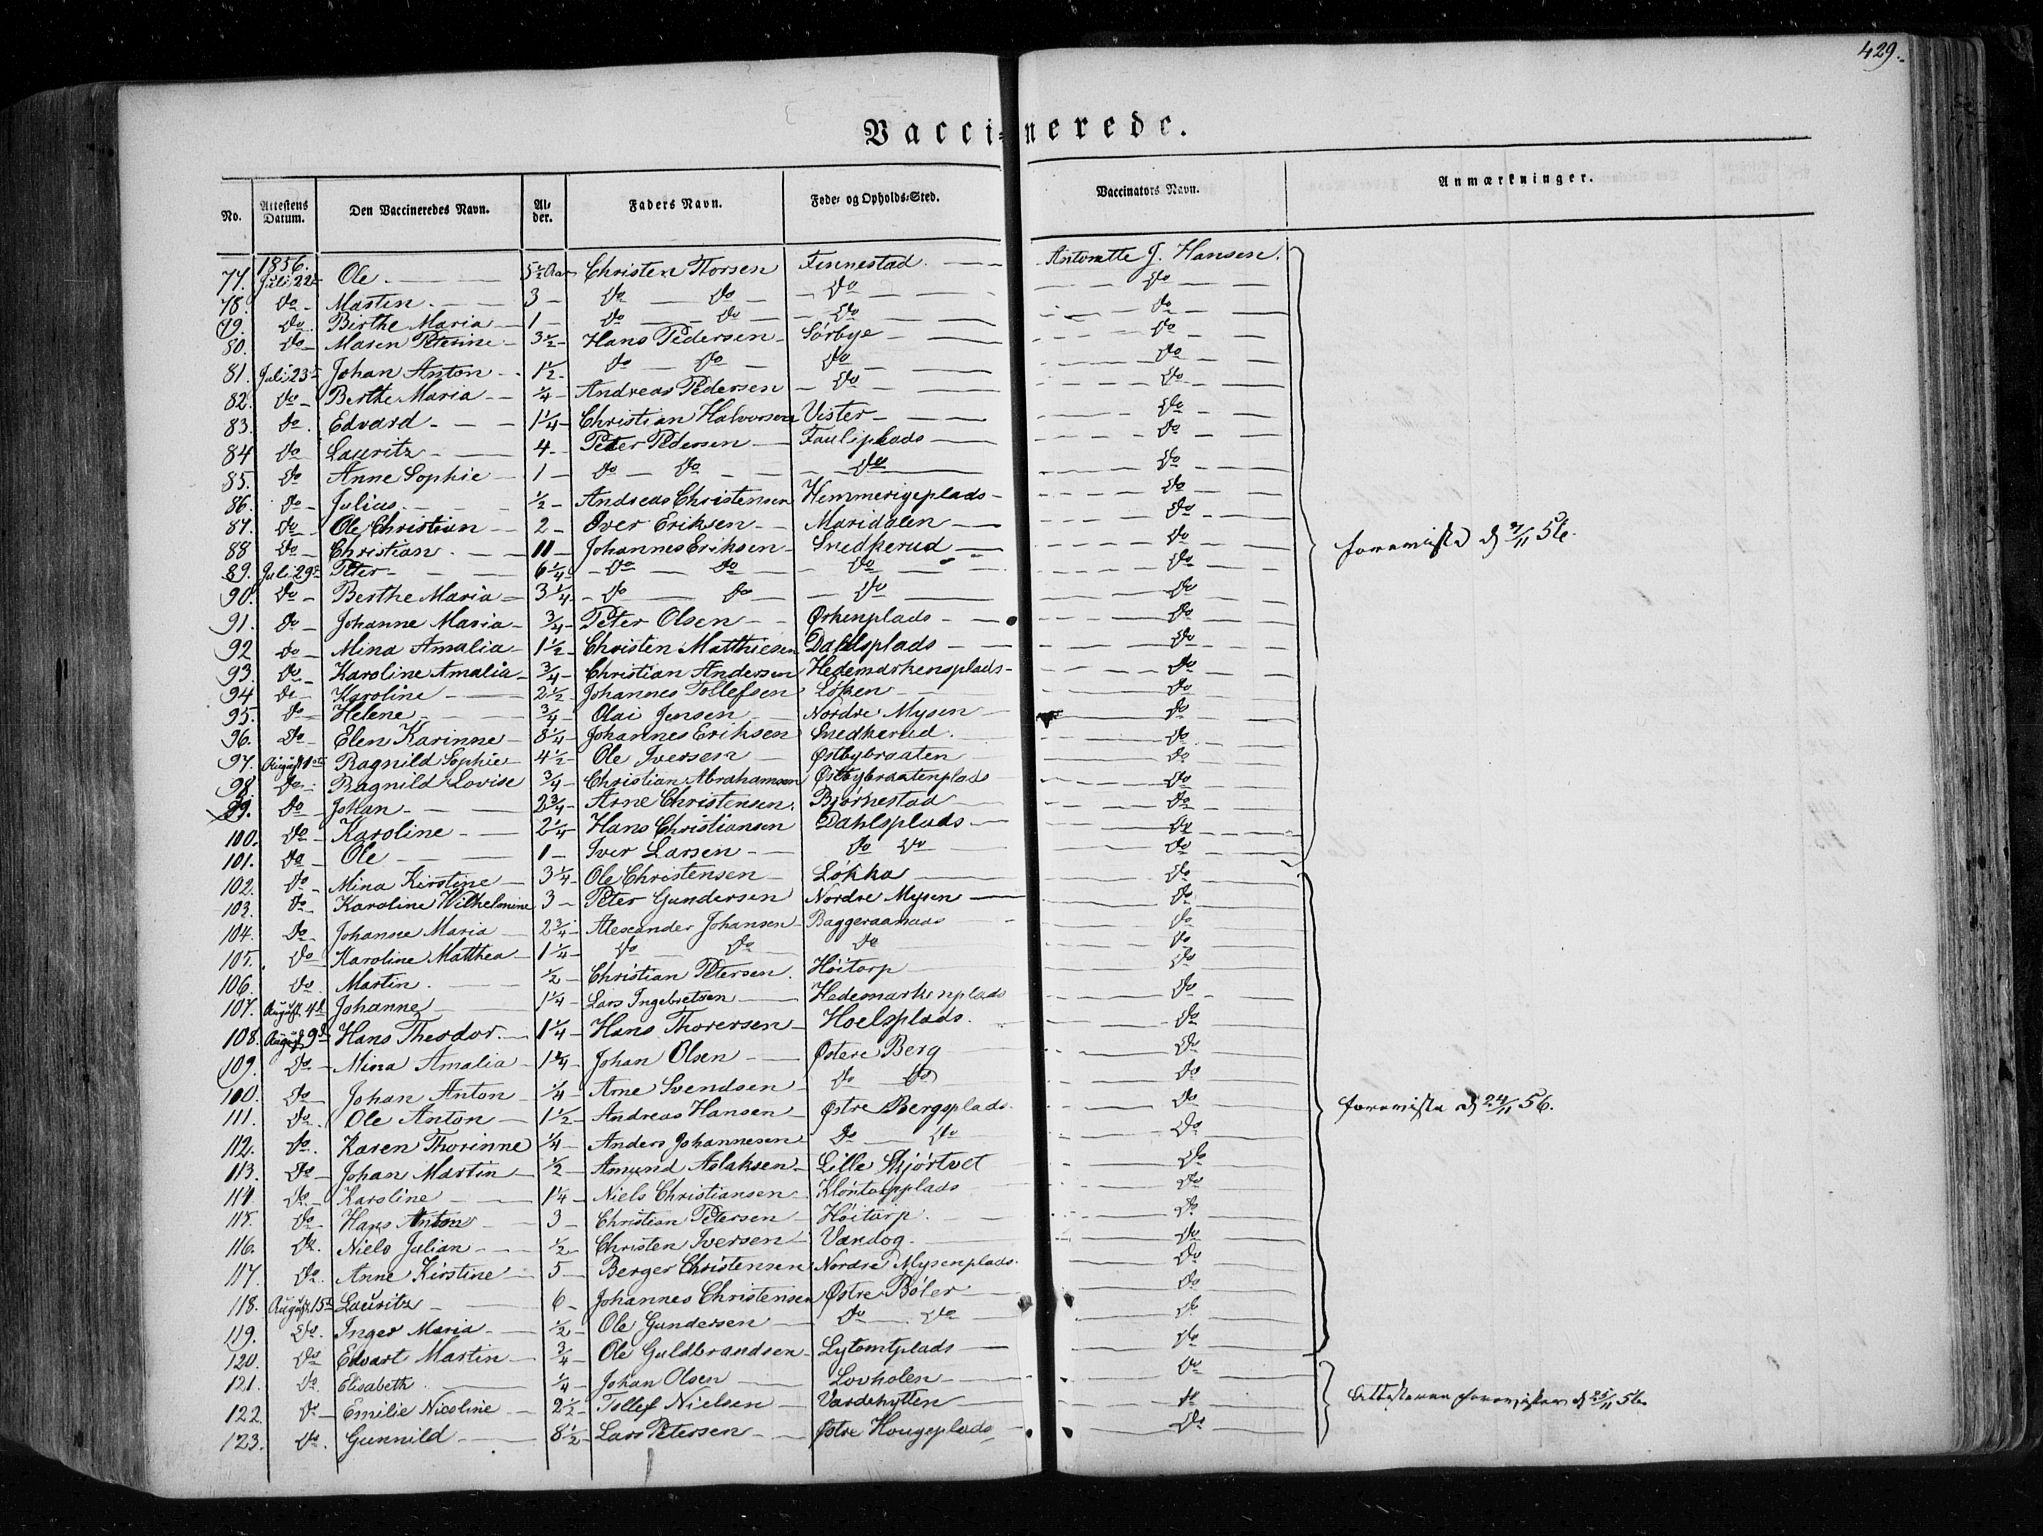 429.
Vaccinerede.
No. Attestens Datum. Den Vaccineredes Navn. Alder. Faders Navn. Føde- og Opholds-Sted. Vaccinators Navn. Anmærkninger.
1856.
77. Juli 22 Ole 5½ Aar Christen Thorsen Finnestad Antonette J. Hansen.
78. Do Martin 3 Do Do Do Do
79. Do Birthe Maria 1 Do Do Do Do
80. Do Maren Petrine 3½ Hans Pedersen Sørbye Do
81. Juli 23 Johan Anton 1½ Do Do Do Do
82. Do Berthe Maria ¼ Andreas Pedersen Do Do
83. Do Edvard 1¼ Christian Halvorsen Vister Do
84 Do Lauritz 4 Peter Pedersen Do
85. Do Anne Sophie 1 Do Do Do Do
86. Do Julius ½ Andreas Christensen Hemmerigeplads Do
87. Do Ole Christian 2 Over Eriksen Maridalen Do
88 Do Christian 11 Johannes Eriksen Snedkerud Do foreviste d 7/11 56.
89. Juli 29 Peter 6¼ Do Do Do Do
90. Do Berthe Maria 3¼ Do Do Do Do
91. Do Johanne Maria ¾ Peter Olsen Ørkenplads Do
92 Do Mina Amalia 1½ Christen Matthiesen Dahlsplads Do
93. Do Karoline Amalia ¾ Christian Andersen Hedemarkensplads Do
94 Do Karoline 2½ Johannes Tollefsen Løken Do
95. Do Helene ¾ Olai Jensen Nordre Mysen Do
96. Do Elen Karinne 8¼ Johannes Eriksen Snedkerud. Do
97. August 1ste Ragnild Sophie 4½ Ole Iversen Østbybraaten Do
98. Do Ragnild Lovise ¾ Christian Abrahamsen Østbybraatenplads Do
99. Do Johan 2¾ Arne Christensen. Bjørnestad Do
100. Do Karoline 2¼ Hans Christiansen Dahlsplads Do
101. Do Ole 1 Iver Larsen Do Do Do
102. Do Mina Kirstine 3¼ Ole Christensen Løkka Do
103. Do Karoline Wilhelmine 3 Peter Gundersen Nordre Mysen Do
104. Do Johanne Maria 2¾ Alexander Johansen Do
105. Do Karoline Matthea 1¼ Do Do Do Do
106. Do Martin ½ Christian Petersen. Høitorp Do
107. August 4d Johanne 1¼ Lars Ingebretsen Hedemarkenplads Do
108. August 9d Hans Theodor. 1¼ Hans Thorersen Hoelsplads. Do
109. Do Mina Amalia 1¾ Johan Olsen Østere Berg Do
100. Do Johan Anton ¼ Arne Svendsen Do Do Do
111. Do Ole Anton 1½ Andreas Hansen Østre Bergsplads. Do foreviste d 24/11 56.
112. Do. Karen Thorinne ¼ Anders Johannesen Do Do Do
113. Do Johan Martin ½ Amund Aslaksen Lille Skjørtvet Do
114 Do. Karoline 1¼ Niels Christiansen Kløntorpplads Do
115. Do Hans Anton 3 Christian Petersen Høitorp. Do
116. Do. Niels Julian ½ Christen Iversen Vandog. Do
117. Do. Anne Kirstine 5 Berger Christensen Nordre Mysenplads. Do
118. August 15 Lauritz 6 Johannes Christensen Østre Bøler Do
119. Do. Inger Maria ½ Ole Gundersen Do Do Do
120. Do Edvart Martin ¾ Ole Guldbrandsen Lytomtplads Do
121. Do. Elisabeth ¼ Johan Olsen Lovholen Do
122 Do Emilie Nicoline 2½ Tollef Nielsen Vardehytten Do Attesterne forevisten d 25/11 56.
123. Do. Gunnild 8½ Lars Petersen Østre Hougsplads Do